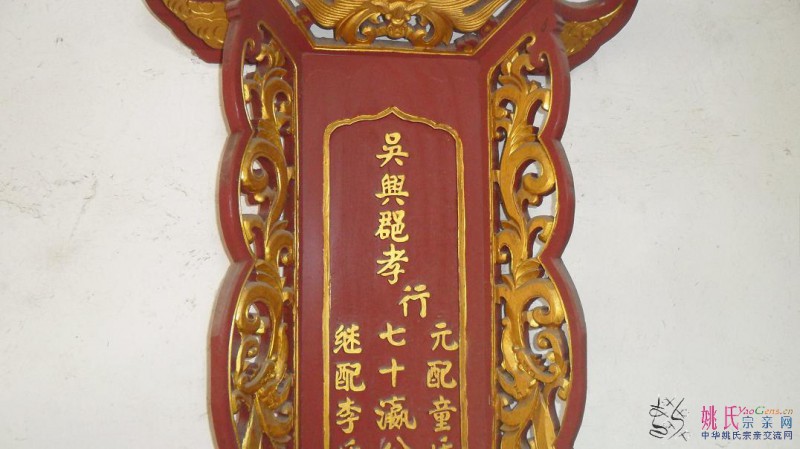 吳興郡孝
行
七十瀛公
元配童氏
继配李氏
姚氏宗亲网
YaoGens.cn
中华姚氏宗亲交流网